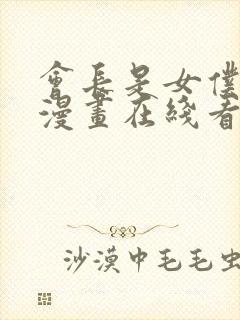 會長是女僕
漫畫在綫看
沙漠中毛毛虫